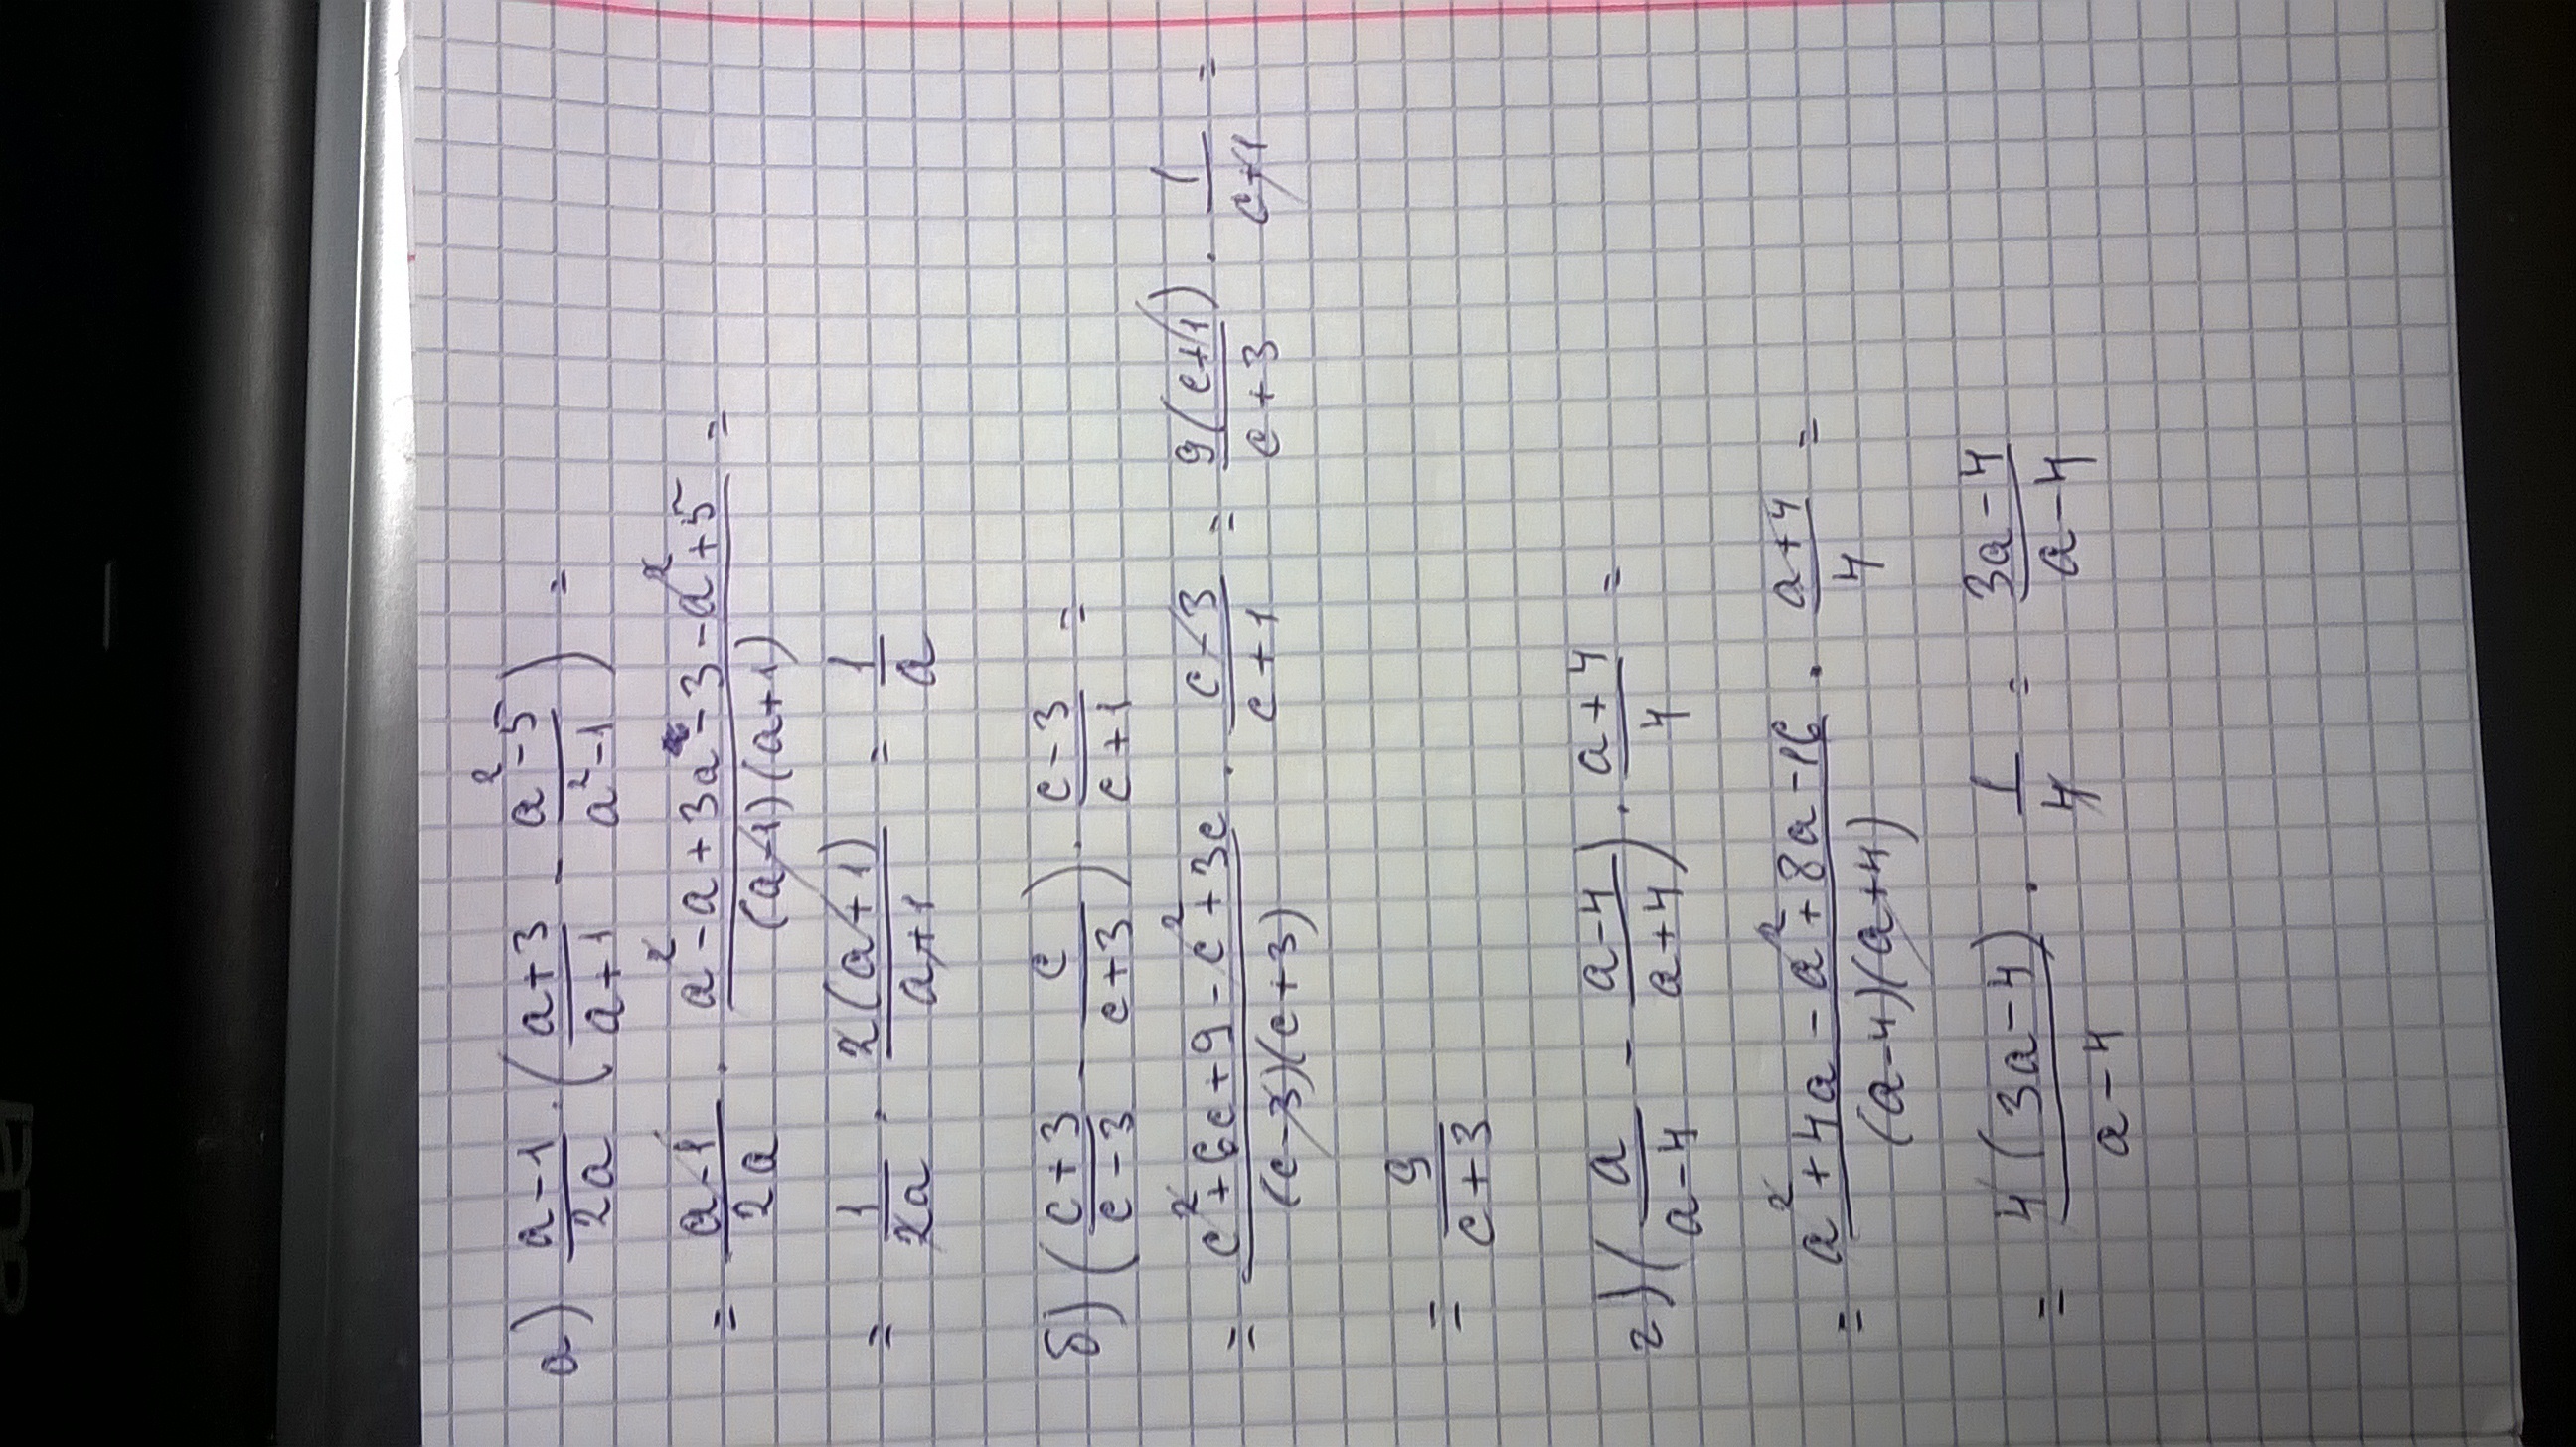 а) (a-1)/(2a) · ((a+3)/(a+1) - (a²-5)/(a²-1)) =
= (a-1)/(2a) · (a²-a+3a-3-a²+5)/((a-1)(a+1)) =
= 1/(2a) · 2(a+1)/(a+1) = 1/a
б) ((c+3)/(c-3) - c/(c+3)) · (c-3)/(c+1) =
= (c²+6c+9-c²+3c)/((c-3)(c+3)) · (c-3)/(c+1) = 9(c+1)/(c+3) · 1/(c+1) =
= 9/(c+3)
г) (a/(a-4) - (a-4)/(a+4)) · (a+4)/4 =
= (a²+4a-a²+8a-16)/((a-4)(a+4)) · (a+4)/4 =
= 4(3a-4)/(a-4) · 1/4 = (3a-4)/(a-4)